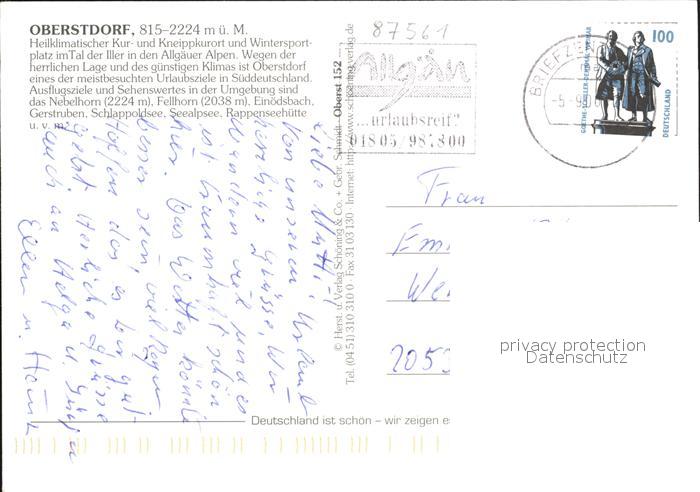 OBERSTDORF, 815–2224 m ü. M.
Heilklimatischer Kur- und Kneippkurort und Wintersport-
platz imTal der Iller in den Allgäuer Alpen. Wegen der
herrlichen Lage und des günstigen Klimas ist Oberstdorf
eines der meistbesuchten Urlaubsziele in Süddeutschland.
Ausflugsziele und Sehenswertes in der Umgebung sind
das Nebelhorn (2224 m), Fellhorn (2038 m), Einödsbach,
Gerstruben, Schlappoldsee, Seealpsee, Rappenseehütte
u. v. m.
Liebe Mutti! 
Von unserem Urlaub
herzliche Grüsse. Wir
wandern viel und es
ist traumhaft schön
hier. Das Wetter könnte
besser sein, viel Regen
Hoffen das es Dir gut
geht. Herzliche Grüsse
auch an Helga u.
Ellen u. Heinz
© Herst. u. Verlag Schöning & Co. + Gebr. Schmidt · Oberst 152
Tel. (04 51) 310 310 0 · Fax 31 03 130 · Internet: http://www.schoening-verlag.de
87561
Allgäu
...urlaubsreif?
01805/987800
BRIEFZEN
-5.-9.
GOETHE-SCHILLER-DENKMAL WEIMAR
100
DEUTSCHLAND
Frau
Em
We
2053
privacy protection
Datenschutz
Deutschland ist schön – wir zeigen es